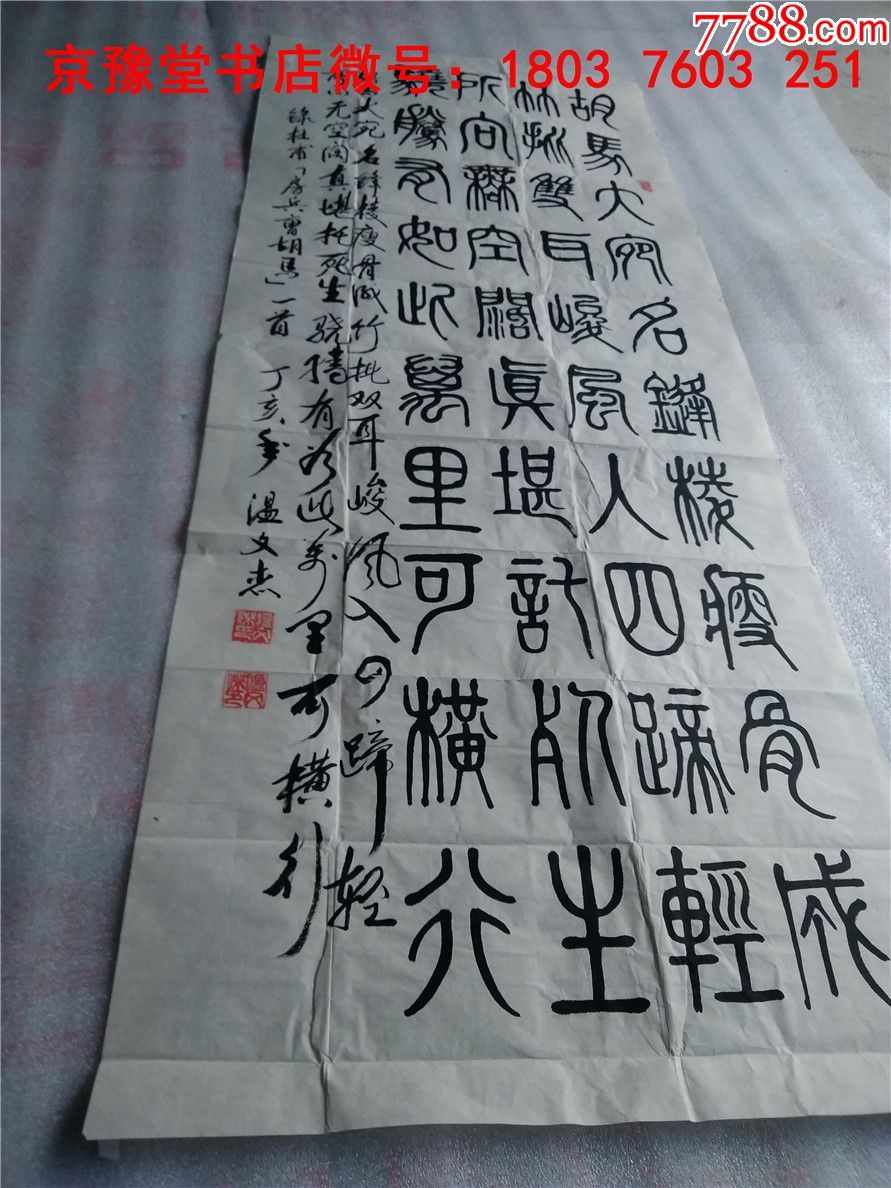 7788.com
京豫堂书店微号：1803 7603 251
胡馬大宛名鋒棱瘦骨成
竹批雙耳峻風入四蹄輕
所向無空闊眞堪託死生
驍騰有如此萬里可橫行
马大宛名锋棱瘦骨成竹批双耳峻风入四蹄轻
向无空阔真堪托死生骁腾有如此万里可横行
録杜甫「房兵曹胡马」一首 丁亥年 温文杰